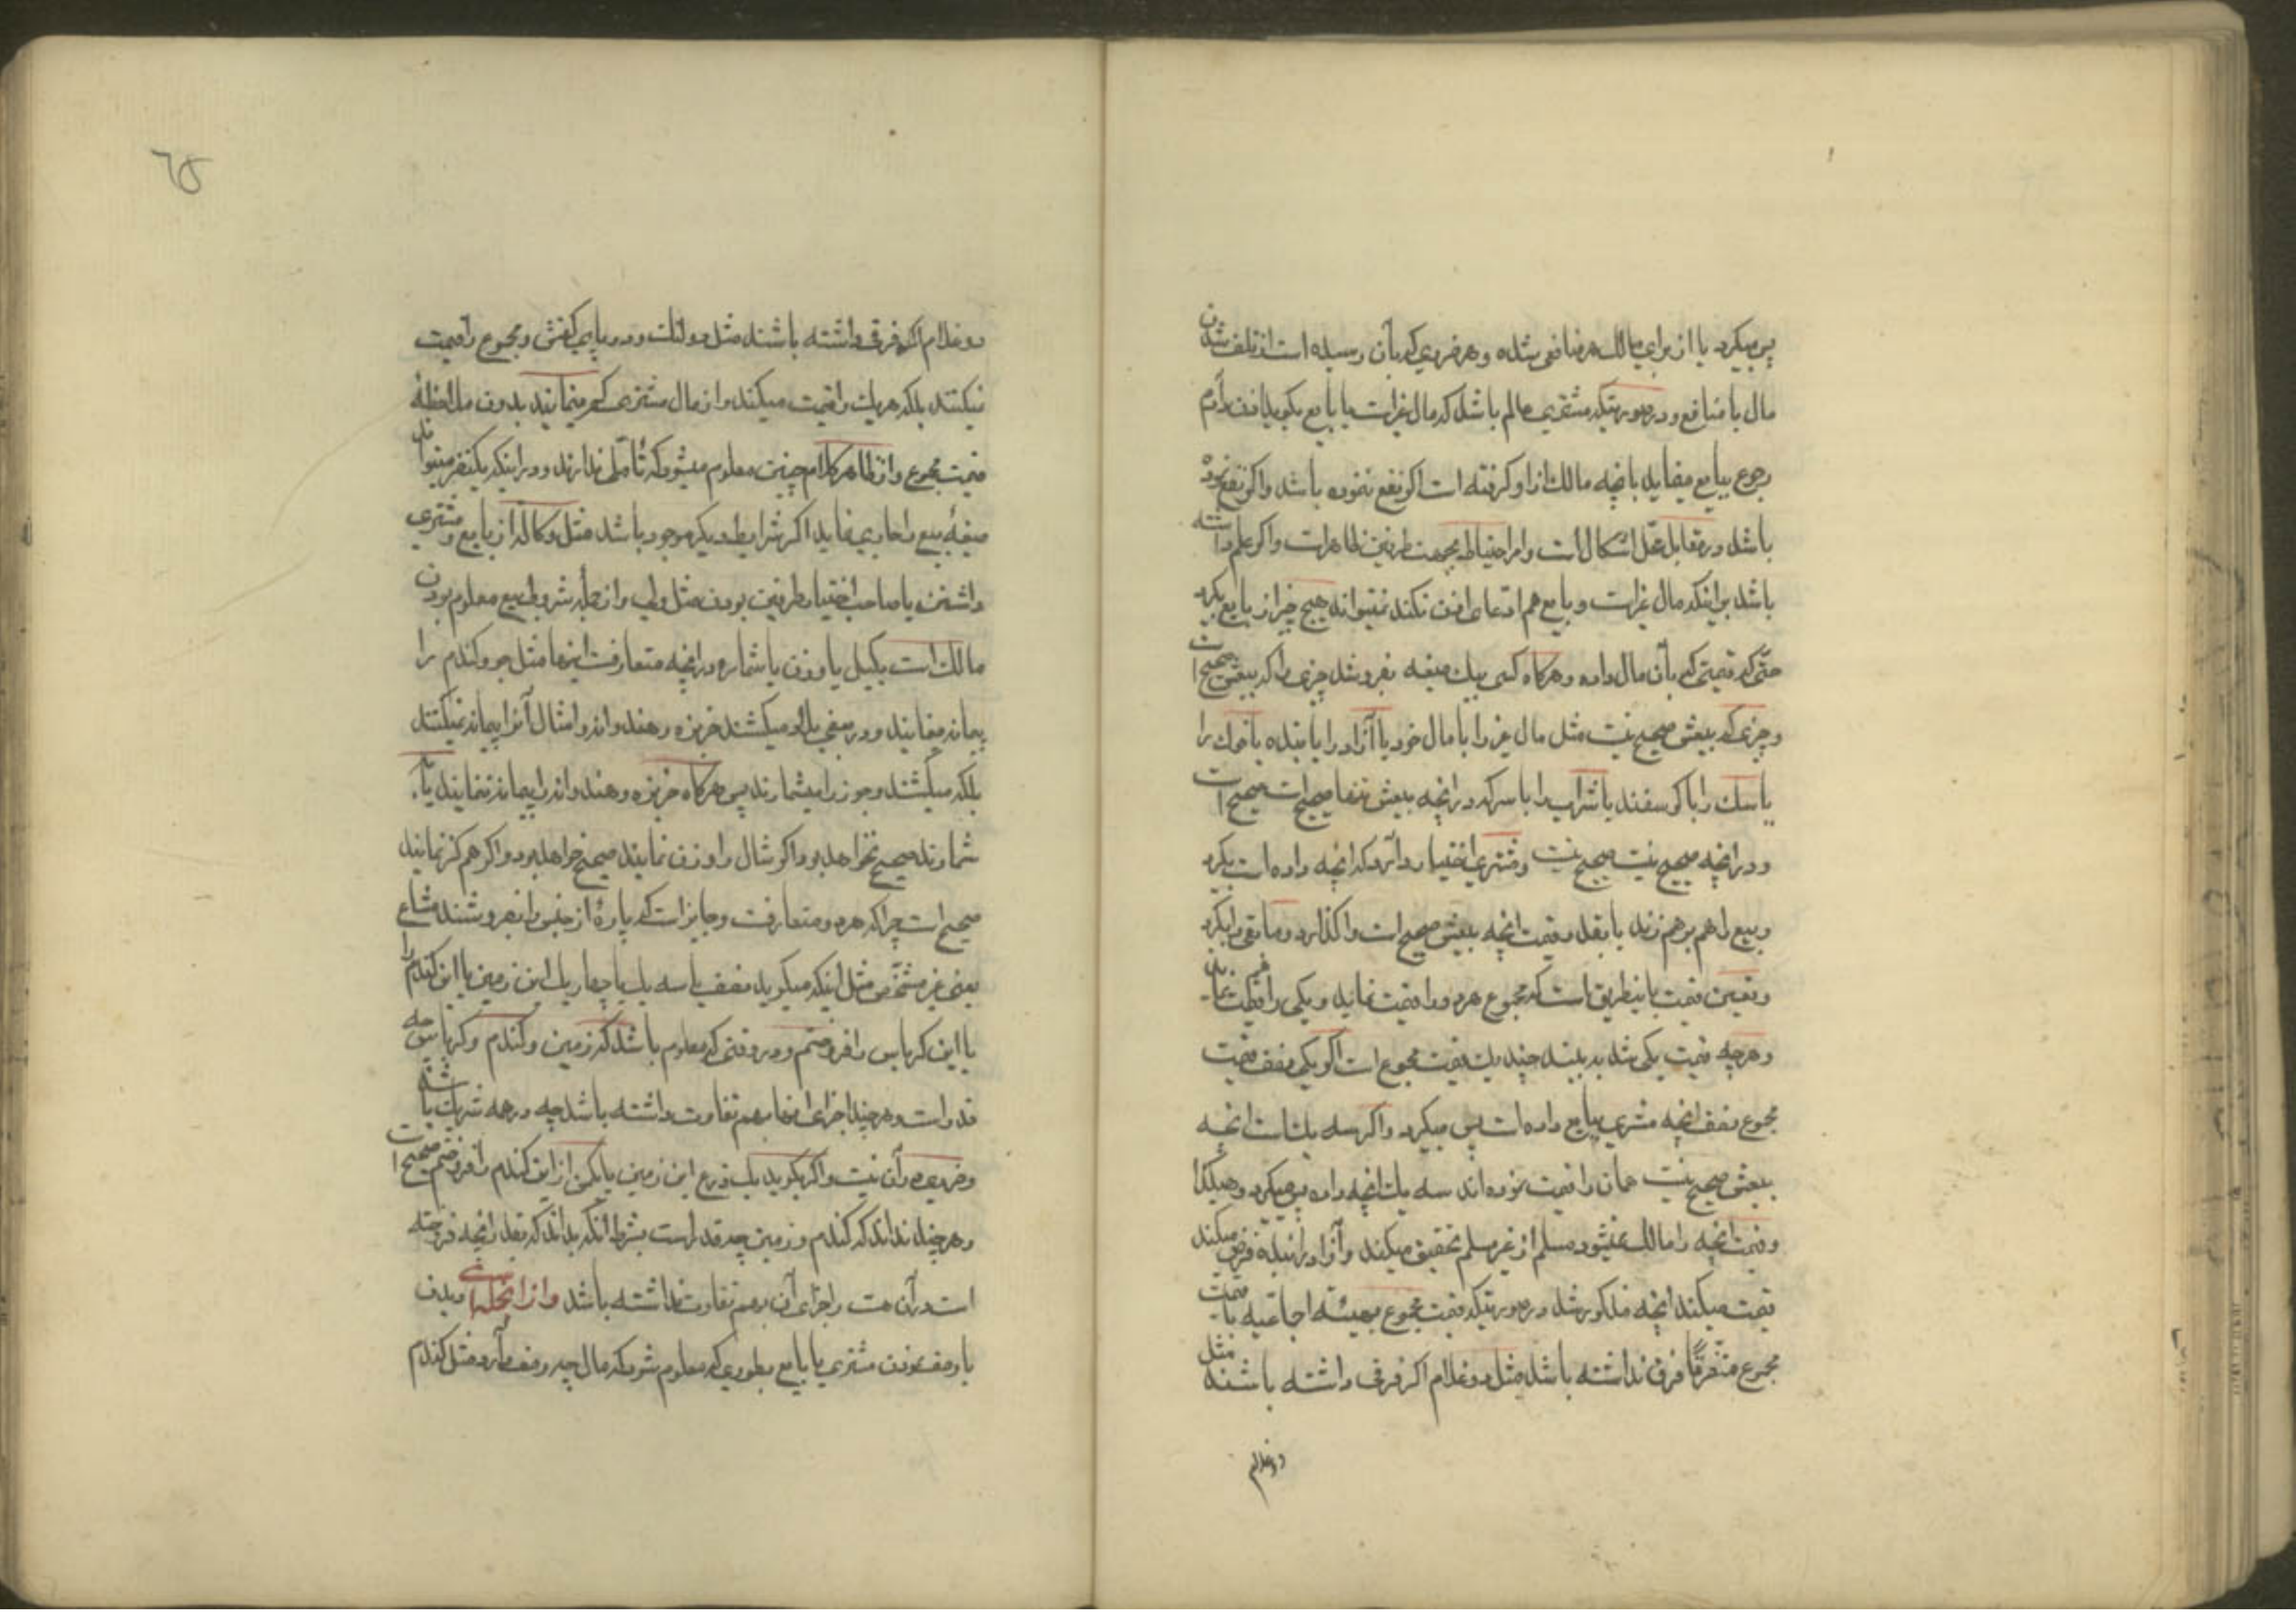 پس میگیرد یا از برای مالک هر منافعی شده و هر ضرری که بآن رسیده است از تلف شدن
مال یا منافع و در صورتیکه مشتری عالم باشد که مال غیر است یا بایع بگوید اذن دارم
رجوع ببایع مینماید بانچه مالک از او گرفته است اگر نفع ننموده باشد و اگر نفع نموده
باشد در مقابل محل اشکال است و امر احتیاط بجهت طرفین ظاهر است و اگر علم داشته
باشد براینکه مال غیر است و بایع هم ادعای اذن نکند نمیتواند هیچ چیز از بایع بگیرد
حتی که قیمتی که بآن مال داده و هرگاه کسی بیک صیغه بفروشد چیزی را که بیعش صحیح است
و چیزی که بیعش صحیح نیست مثل مال غیر را با مال خود یا آزاد را با بنده یا خوک را
یا سک را با کوسفند یا شراب را با سرکه در انچه بیعش تنها صحیح است صحیح است
و در انچه صحیح نیست صحیح نیست و مشتری اختیار دارد که انچه داده است بگیرد
و بیع را هم برهم زند یا بقدر قیمت انچه بیعش صحیح است واگذارد و مابقی را بگیرد
و تعیین قیمت باینطریق است که مجموع هر دو را قیمت نماید و یکی را قیمت نماید
و هرچه قیمت یکی شد به بیند چند یک قیمت مجموع است اگر یکی نصف قیمت
مجموع نصف انچه مشتری ببایع داده است پس میگیرد و اگر سه یک است انچه
بیعش صحیح نیست همان را قیمت نموده اند سه یک انچه داده پس میگیرد و هکذا
و قیمت انچه را مالک نمیشود مسلم از غیر مسلم تحقیق میکند و آزاد را بنده فرض میکند
قیمت میکند انچه مذکور شد در صورتیکه قیمت مجموع بهیئه اجتماعیه با قیمت
مجموع متفرقًا فرق نداشته باشد مثل دو غلام اگر فرقی داشته باشند مثل
دو غلام
٦٥
دو غلام اگر فرقی داشته باشند مثل دو لنکه در و پای کفش و مجموع را قیمت
نمیکنند بلکه هر یک را قیمت میکنند و از مال مشتری کم مینمایند بدون ملاحظهٔ
قیمت مجموع و از ظاهر کلام چنین معلوم میشود که تأملی ندارند و در اینکه یکنفر میتواند
صیغهٔ بیع را جاری نماید اگر شرایط دیگر موجود باشد مثل وکاله از بایع و مشتری
داشتن یا صاحب اختیار طرفین بودن مثل ولی و از جمله شروط بیع معلوم بودن
مالک است بکیل یا وزن یا شماره در انچه متعارف است اینها مثل جو و کندم را
پیمانه مینمایند و در بعضی بلاد میکشند خربزه و هندوانه و امثال آنرا پیمانه نمیکنند
بلکه میکشند و جوز را میشمارند پس هرگاه خربزه و هندوانه را پیمانه نمایند یا
شمارند صحیح نخواهد بود و اگر شال را وزن نمایند صحیح خواهد بود و اگر هم کز نمایند
صحیح است چرا که هر دو متعارفست و جایز است که پارهٔ از جنس را بفروشند مشاع
یعنی غیر مشخّص مثل اینکه میگوید نصف یا سه یک یا چهار یک این زمین یا این کندم را
یا این کرباس را فروختم و در وقتی که معلوم باشد که زمین و کندم و کرباس چه
قدر است و هر چند اجزای انها بهم تفاوت داشته باشد چه در همه شریک باشد
و ضرری در آن نیست و اگر بگوید یک ذرع این زمین یا یکمن از این کندم را فروختم صحیح است
و هرچند نداند که کندم و زمین چه قدر است بشرط انکه بداند که بقدر انچه فروخته
است در آن هست و اجزای آن بهم تفاوت نداشته باشد و از انجمله دیدن
یا وصف نمودن مشتری یا بایع بطوریکه معلوم شود که مال چه وصف دارد مثل کندم